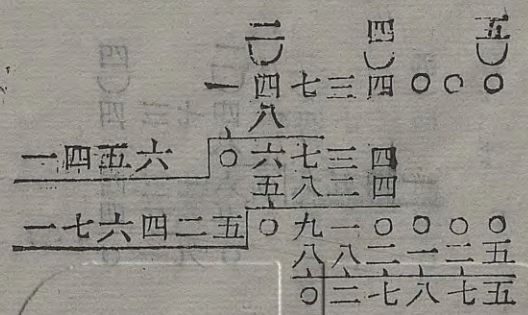 二 四 五
一四七三四〇〇〇
八
一四五六 〇六七三四
五八二四
一七六四二五 〇九一〇〇〇〇
八八二一二五
〇二七八七五